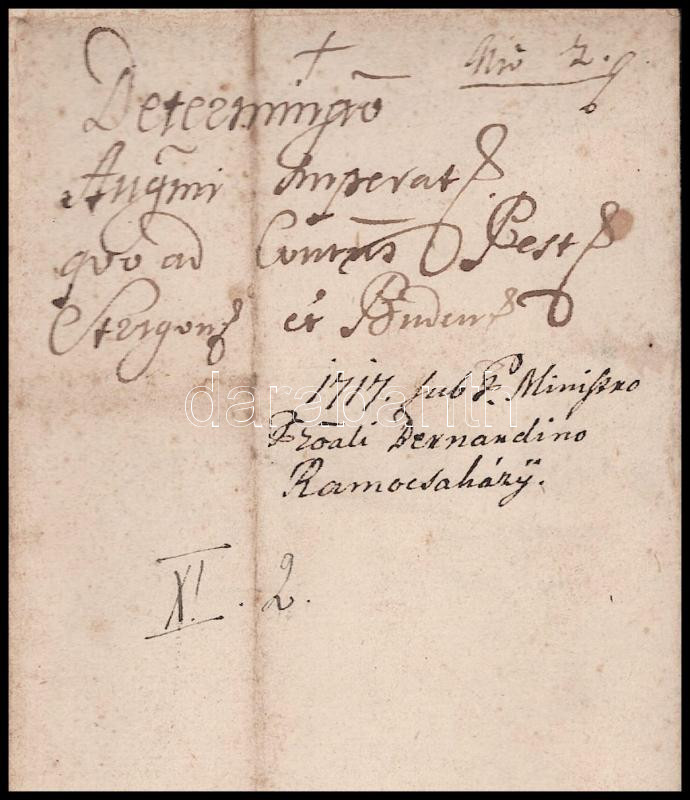 + Nrō 2.
Determinaō
Augmī Imperat
quo ad Contus Pest
Strigon et Buden
1717. sub P. Ministro
Proāli Bernardino
Ramocsaházÿ.
XI. 2.
darabanth